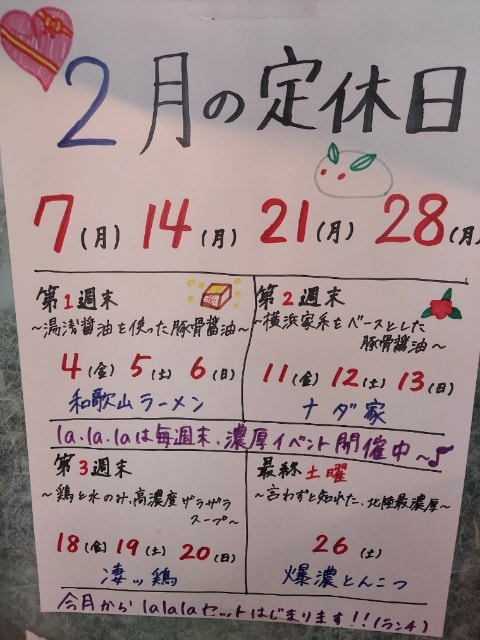 2月の定休日
7(月) 14(月) 21(月) 28(月)
第1週末
~湯浅醤油を使った豚骨醤油~
4(金) 5(土) 6(日)
和歌山ラーメン
第2週末
~横浜家系をベースとした
豚骨醤油~
11(金) 12(土) 13(日)
ナダ家
la.la.laは毎週末、濃厚イベント開催中~♪
第3週末
~鶏と水のみ、高濃度ザラザラ
スープ~
18(金) 19(土) 20(日)
凄ッ鶏
最終土曜
~言わずと知れた、北陸最濃厚~
26(土)
爆濃とんこつ
今月からlalalaセットはじまります!!(ランチ)